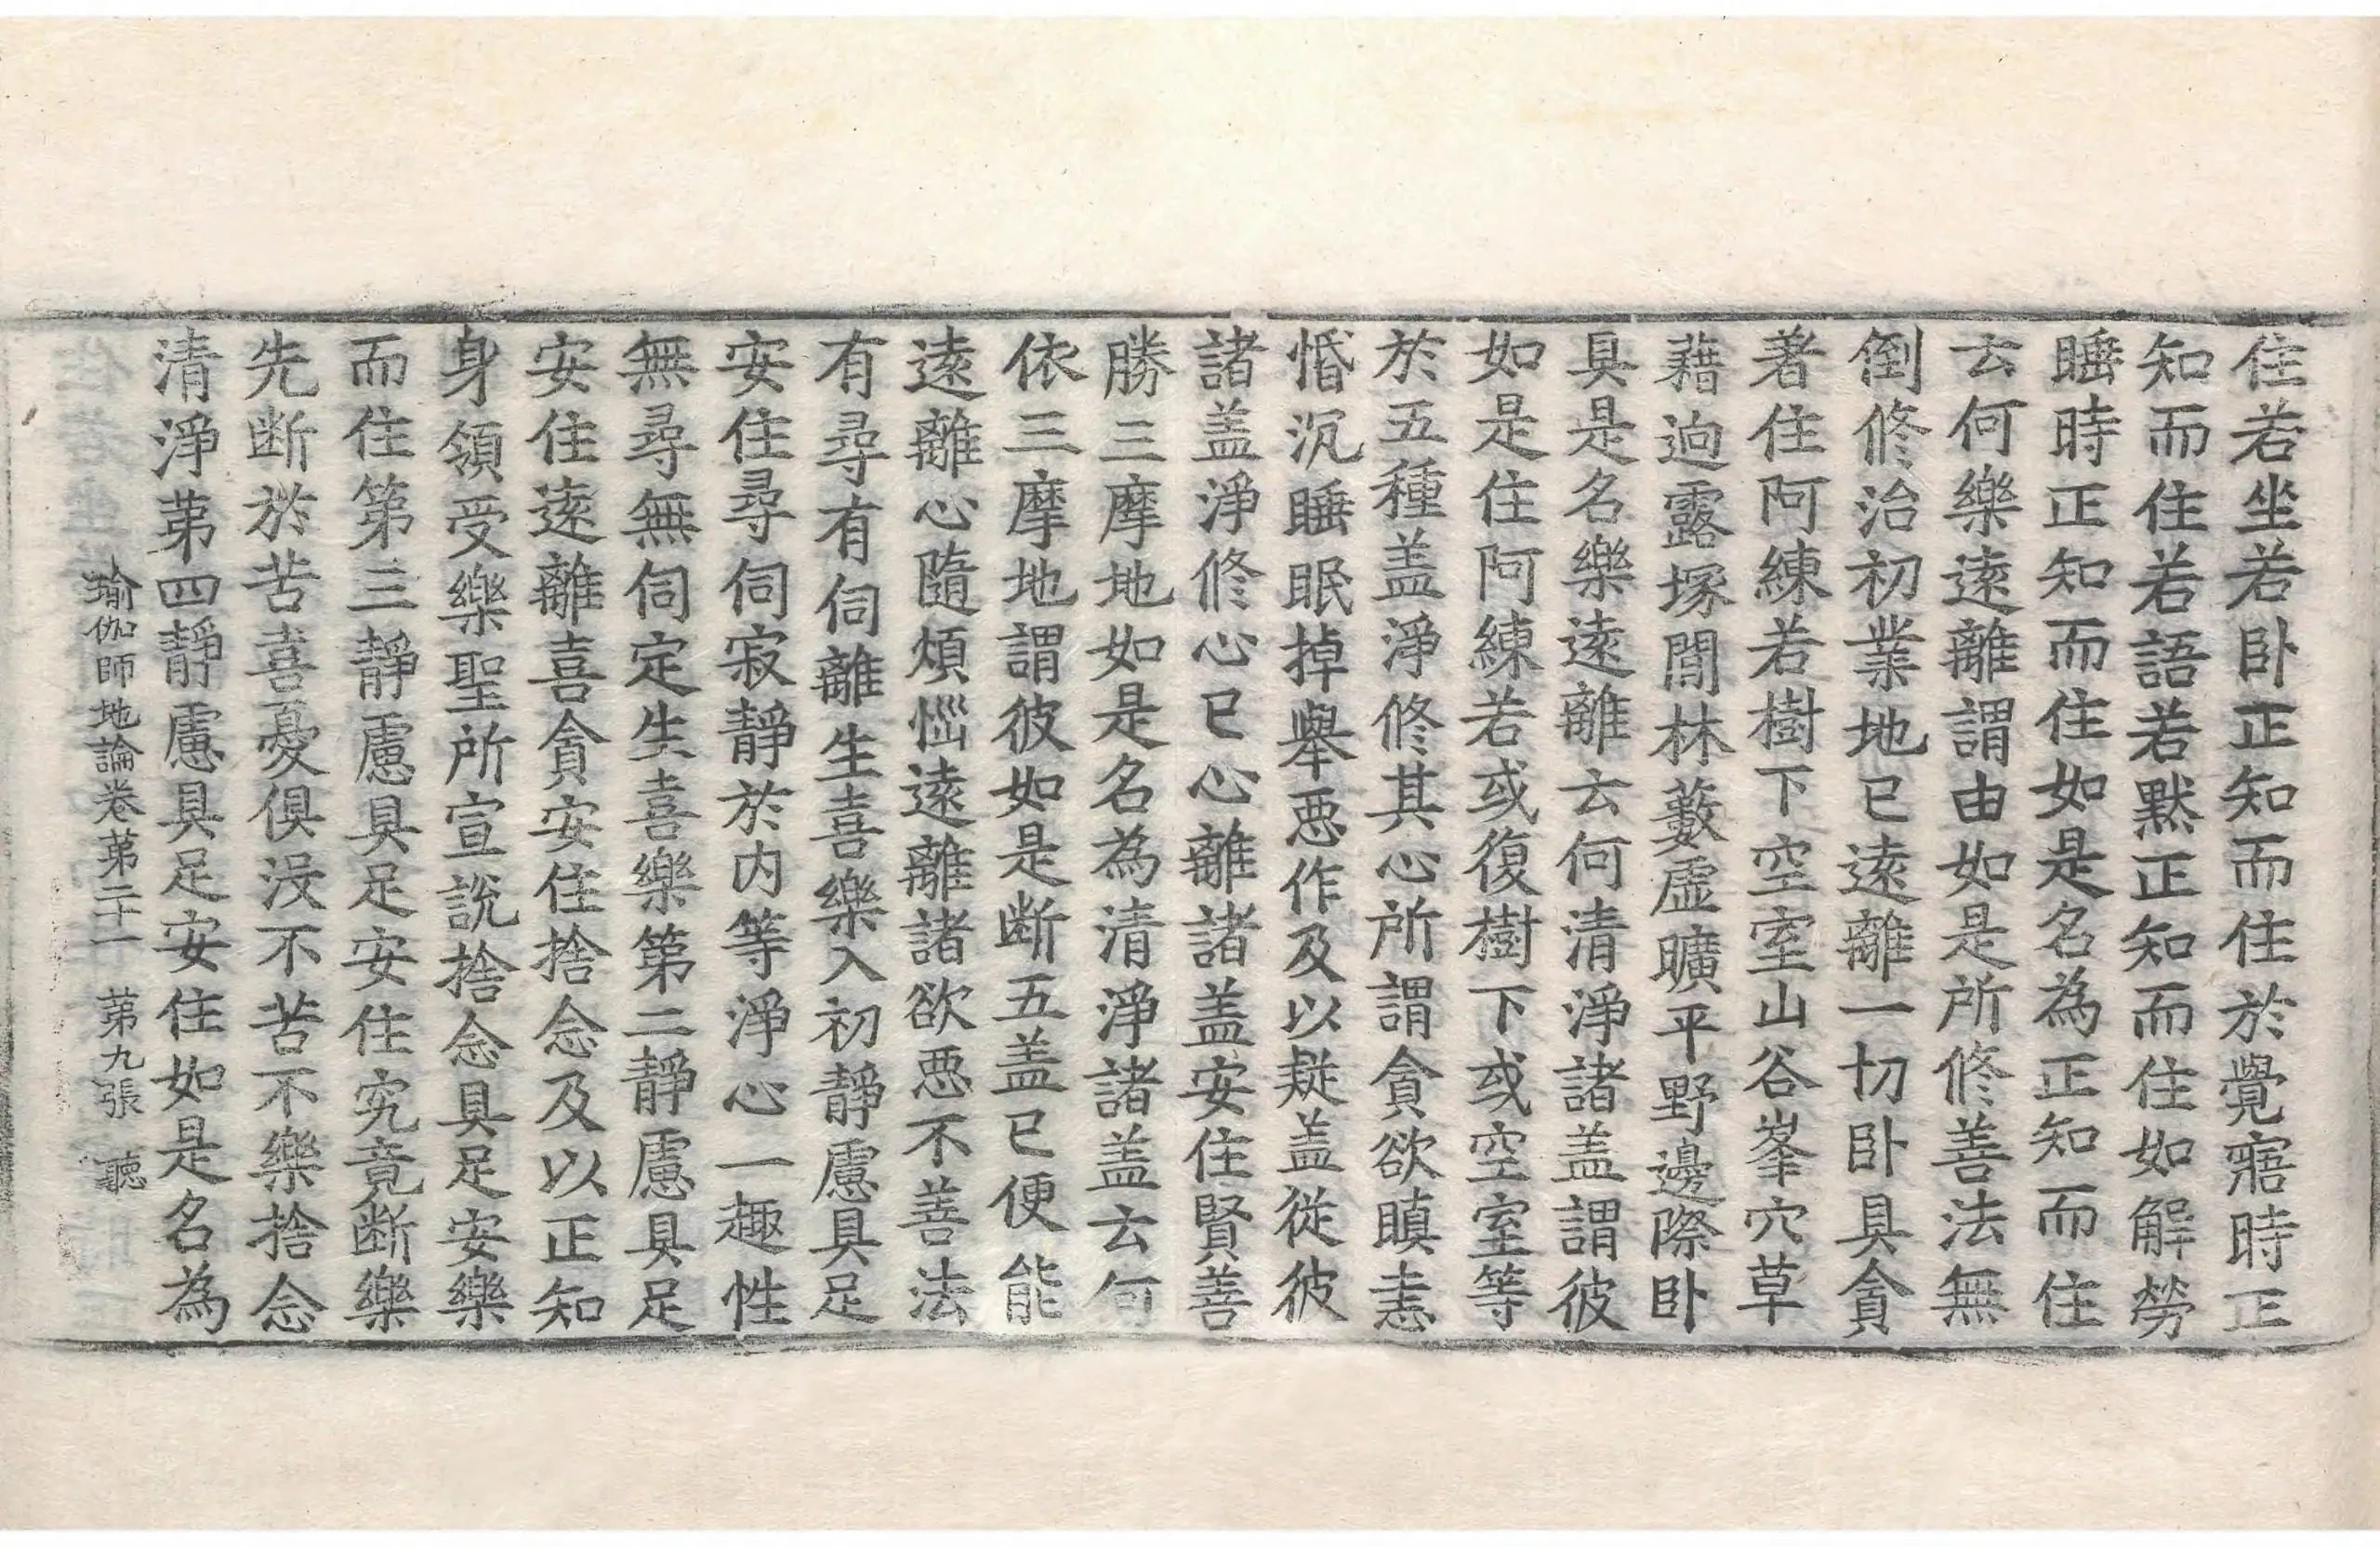 住若坐若卧正知而住於覺寤時正
知而住若語若黙正知而住如解勞
睡時正知而住如是名為正知而住
云何樂遠離謂由如是所修善法無
倒修治初業地已遠離一切卧具貪
著住阿練若樹下空室山谷峯穴草
藉逈露塚間林藪虛曠平野邊際卧
具是名樂遠離云何清淨諸盖謂彼
如是住阿練若或復樹下或空室等
於五種盖淨修其心所謂貪欲瞋恚
惛沉睡眠掉舉惡作及以疑盖從彼
諸盖淨修心已心離諸盖安住賢善
勝三摩地如是名為清淨諸盖云何
依三摩地謂彼如是断五盖已便能
遠離心隨煩惱遠離諸欲惡不善法
有尋有伺離生喜樂入初靜慮具足
安住尋伺寂靜於内等淨心一趣性
無尋無伺定生喜樂第二靜慮具足
安住遠離喜貪安住捨念及以正知
身領受樂聖所宣說捨念具足安樂
而住第三靜慮具足安住究竟断樂
先断於苦喜憂俱沒不苦不樂捨念
清淨苐四靜慮具足安住如是名為
瑜伽師地論卷苐二十一 苐九張 聽